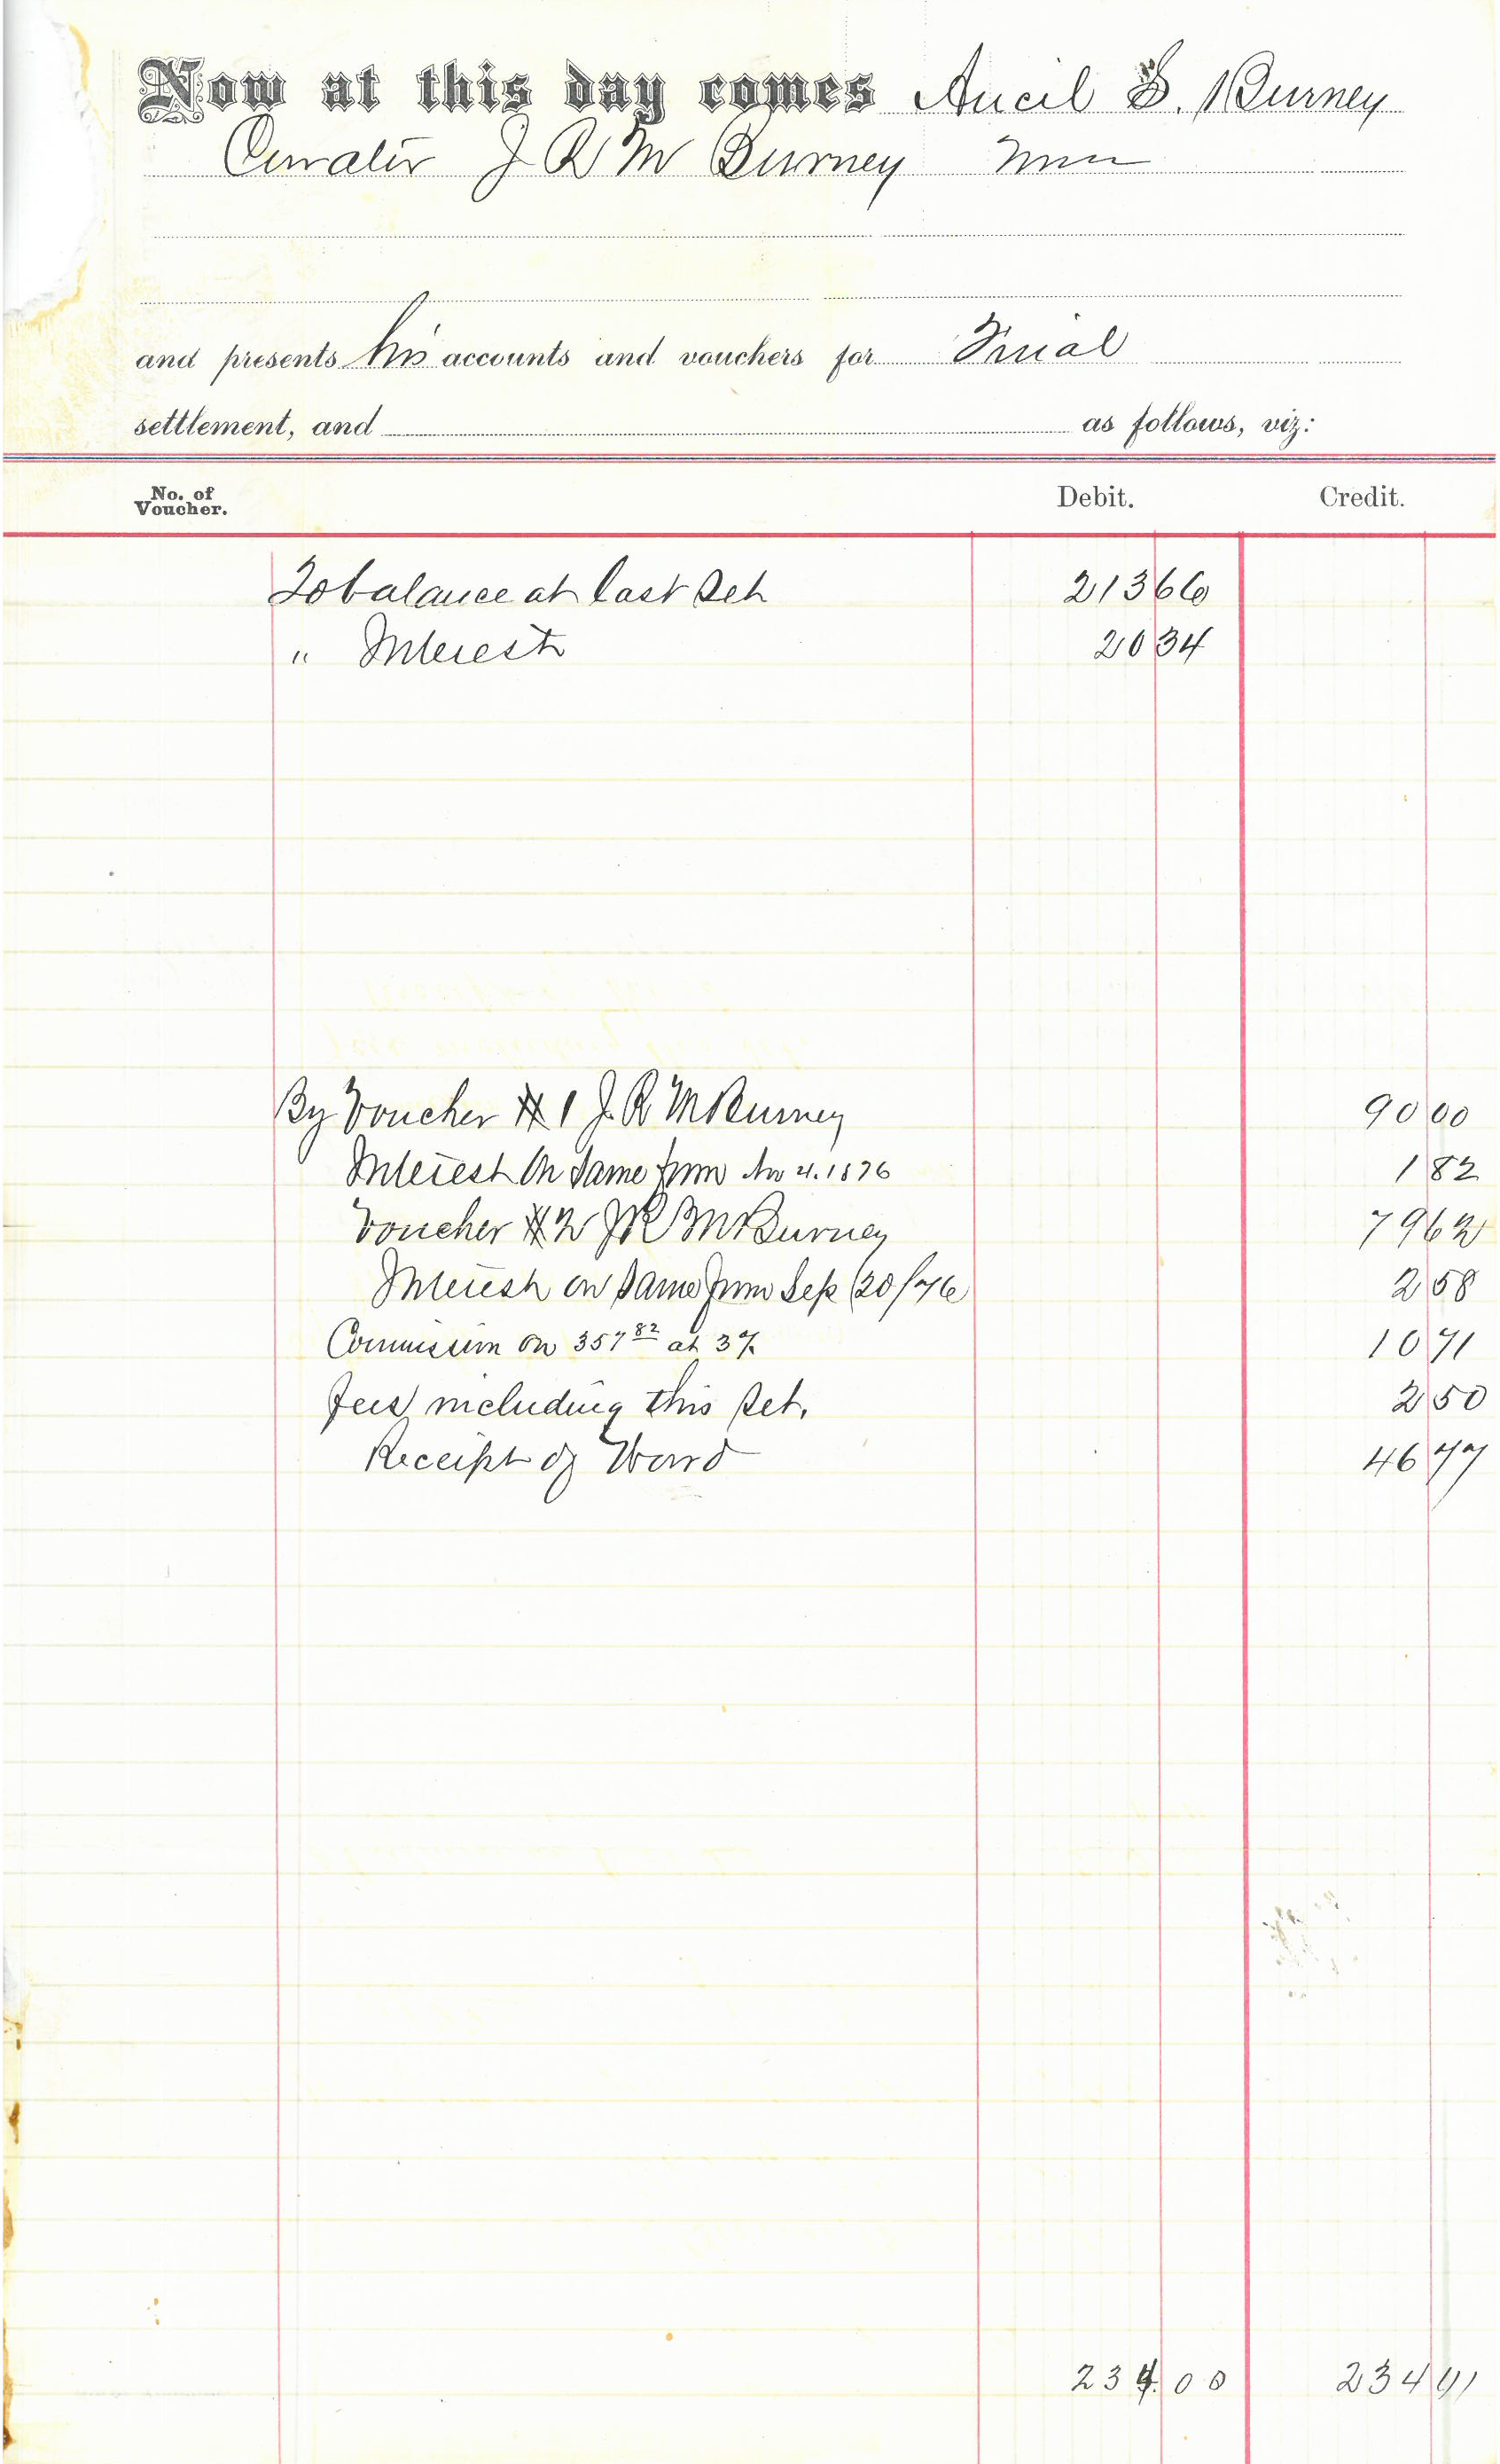 Now at this day comes Ancil S. Burney
Curator J R M Burney
and presents his accounts and vouchers for Final
settlement, and as follows, viz:
No. of Voucher. Debit. Credit.
To balance at last Set 213 66
" Interest 20 34
By Voucher # 1 J. R. M Burney 90 00
Interest On Same from Nov 4. 1876 1 82
Voucher # 2 J R M Burney 79 62
Interest on Same from Sep 20/76 2 58
Commission on 357 82 at 3% 10 71
Fees including this Set. 2 50
Receipt of Ward 46 77
234.00 234